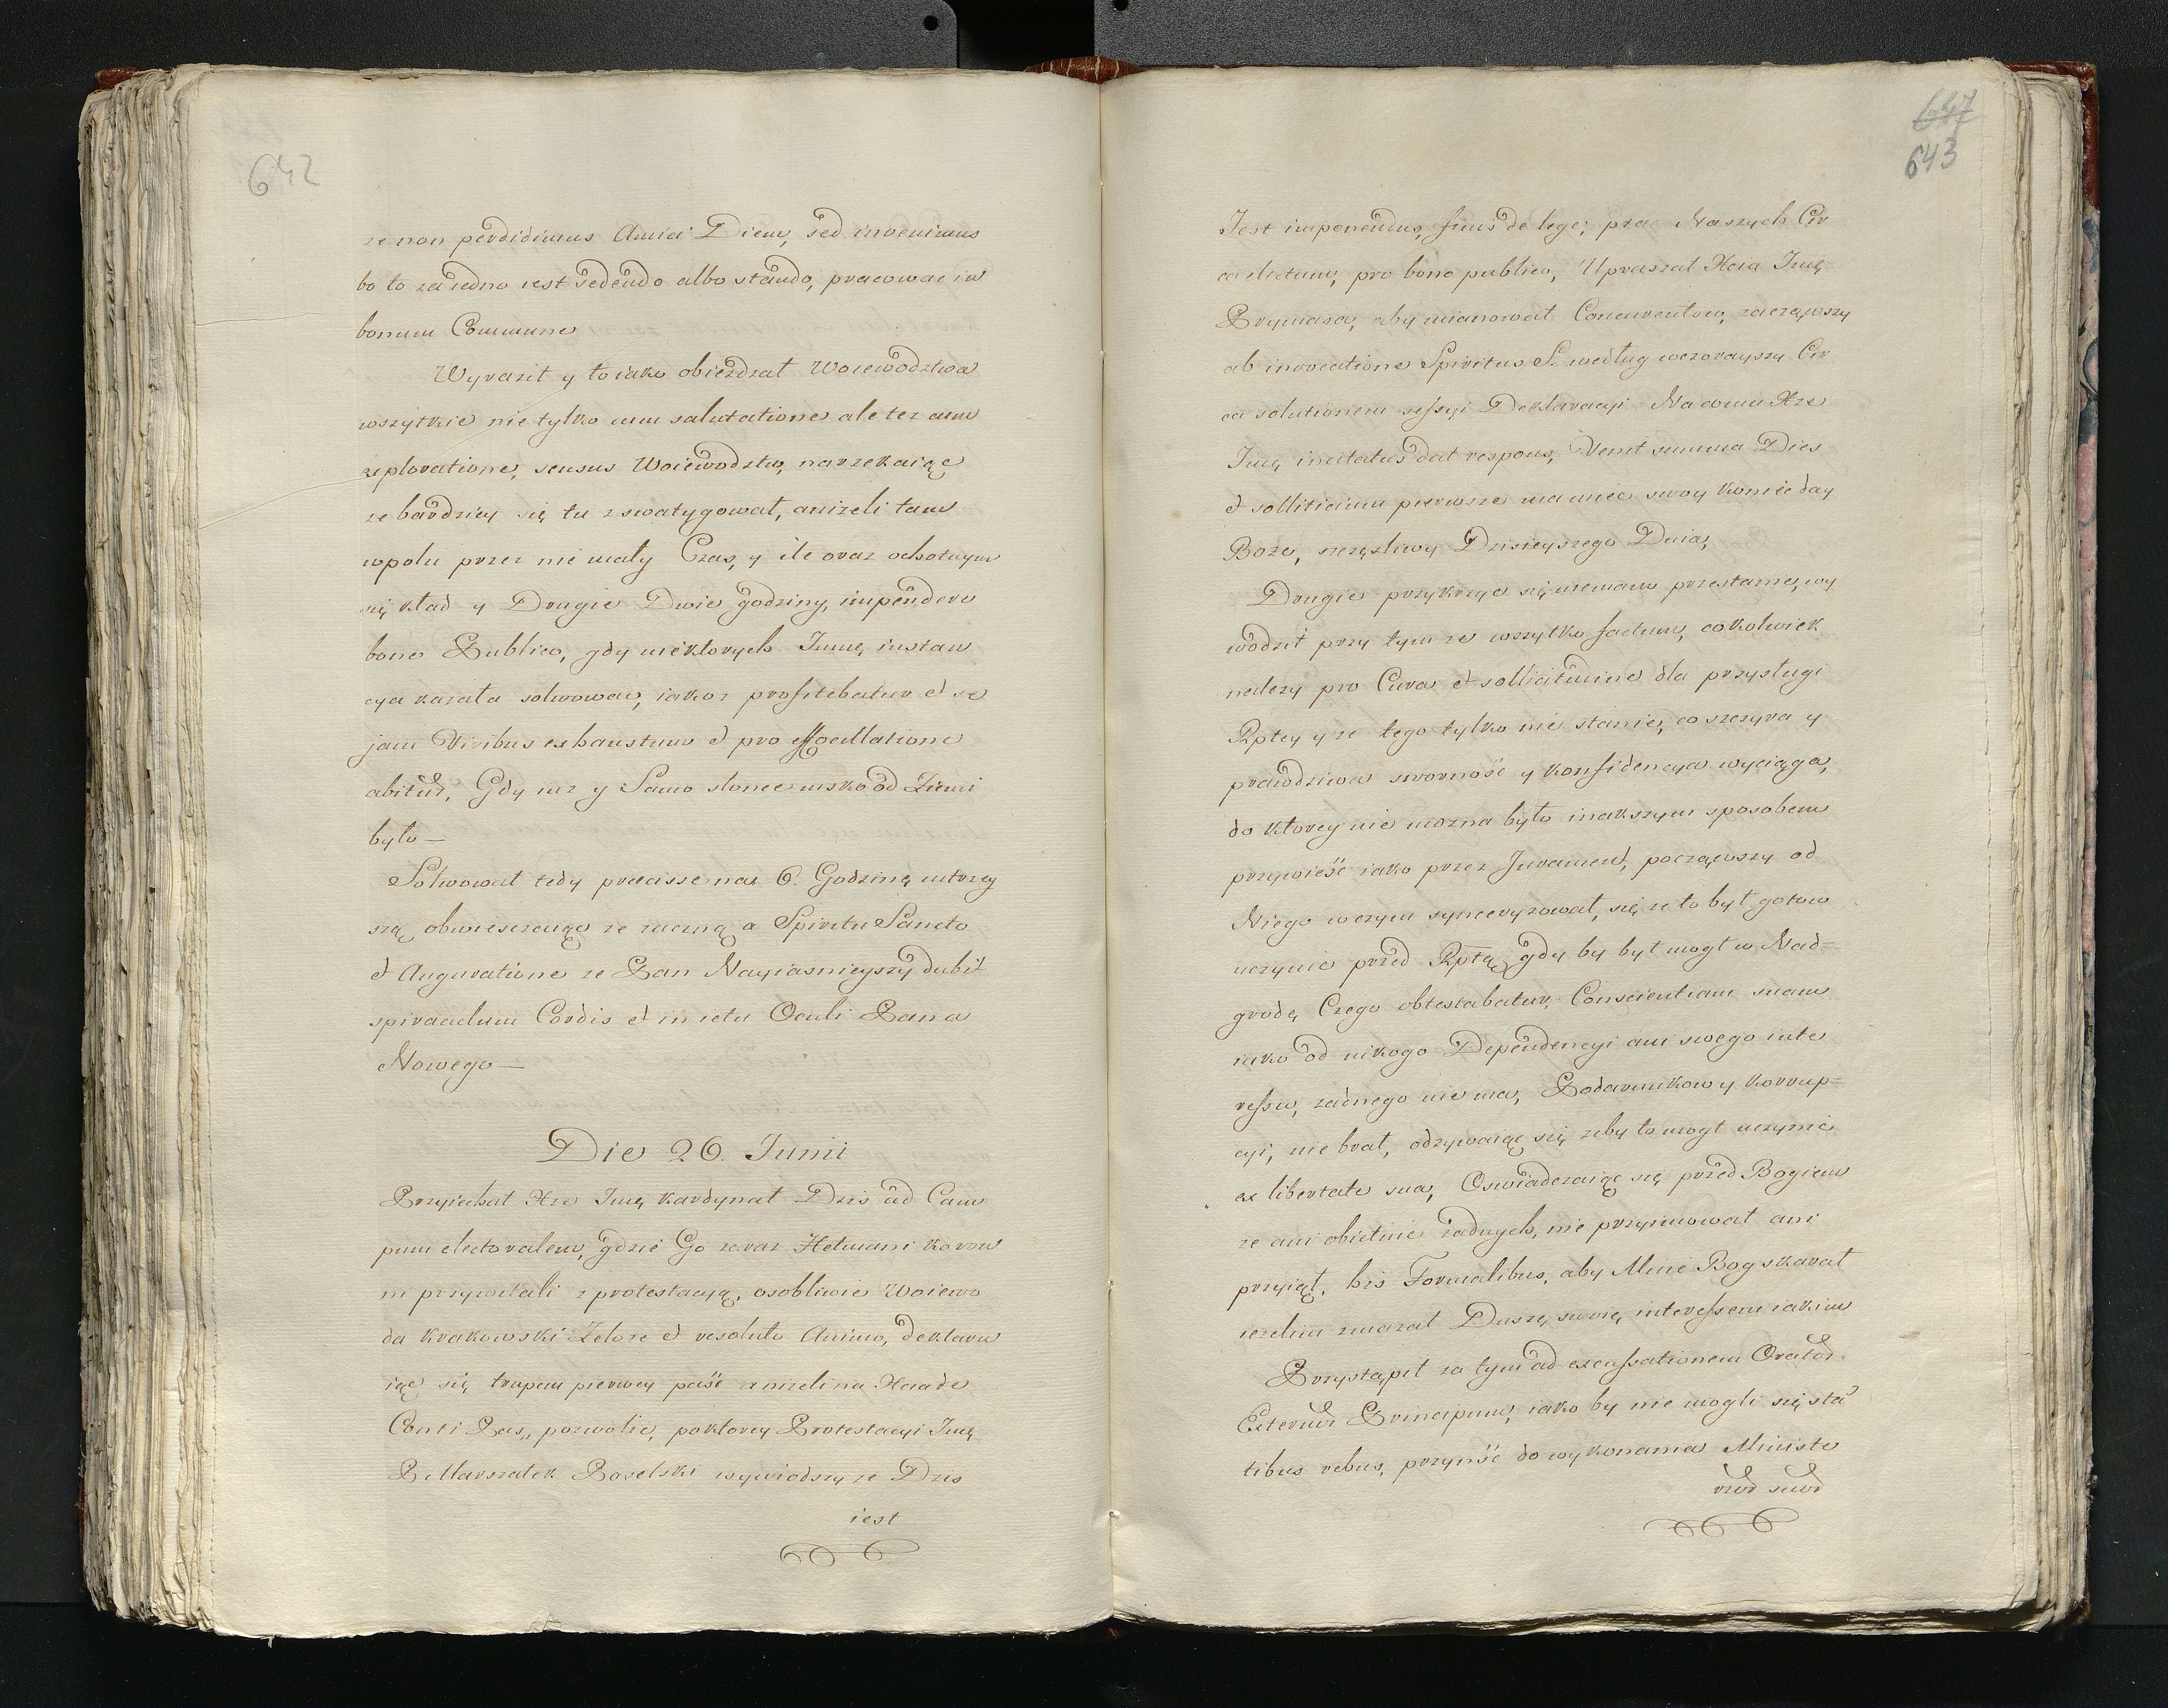 642
ze non perdidimus Amici Diem, sed invenimus
bo to za iedno iest sedendo albo stando, pracowac in
bonum Commune
Wyraził y to iako obiezdzał Woiewodztwa
wszytkie nie tylko cum salutatione ale tez cum
exploratione, sensus Woiewodztw, narzekaiąc
ze bardziey się tu zswatygował, anizeli tam
wpolu przez nie mały Czas, y ile oraz ochotnym
się kład y Drugie Dwie godziny, impendere
bono Publico, gdy niektorych Immę instan
cya kazała solwowac, iakoz profitebatur et se
jam Viribus exhaustum et pro
abitur, Gdy iuz y Samo słonce nisko od Ziemi
było —
Solwował tedy praecisse na 6. Godzinę iutrzey
szą obwieszczaiąc ze zaczną a Spiritu Sancto
et Auguratione ze Pan Nayiasnieyszy dabit
spiraculum Cordis et in ictu Oculi Pana
Nowego —
Die 26. Junii
Przyiechał Xze Imę kardynał Dzis ad Cam
pum electoralem, gdzie Go zaraz Hetmani koron
ni przywitali z protestacyą, osobliwie Woiewo
da krakowski Zelose et resoluto Animo, deklaru
iąc się trupem pierwey paść anizeli na Xcia de
Conti Pas,, pozwolic, po ktorey Protestacyi Imę
P Marszałek Poselski wywiodszy ze Dzis
iest
647
643
Jest imponendus, finis de lege, prac Naszych Cir
ca electum, pro bono publico, Upraszał Xcia Imę
Prymasa, aby mianował Concurentow, zacząwszy
ab invocatione Spiritus S. według wczorayszy Cir
ca solutionem sessyi Deklaracyi Na co mu Xze
Imę incitatus dat respons, Venit summa Dies
et sollicitium pierwsze ma miec swoy koniec day
Boze, szczęsliwy Dzisieyszego Dnia,
Drugie przykrzyc się niemam przestanie, wy
wodził przy tym ze wszytko factum, cokolwiek
nalezy pro Cura et sollicitudine dla przysługi
Rptey y ze tego tylko nie stanie, co szczyra y
prawdziwa swornośc y konfidencya wyciąga,
do ktorey nie mozna było inakszym sposobem
przywieśc iako przez Jurament, począwszy od
Niego w czym synceryzował, się ze to był gotow
uczynic przed Rptą gdy by był mogł w Nad=
grodę Czego obtestabatur, Conscientiam suam
iako od nikogo Dependencyi ani swego inte
ressu, zadnego nie ma, Podarunkow y korrup=
cyi, nie brał, odzywaiąc się zeby to mogł uczynic
ex libertate sua, Oswiadczaiąc się przed Bogiem
ze ani obietnic zadnych, nie przyimował ani
przyiął, his Formalibus, aby Mnie Bog skarał
iezelim zmazał Duszę swoię interessem iakim
Przystąpił za tym ad excussationem Orator
Exterum Principum, iako by nie mogli się sta
tibus rebus, przyiśc do wykonania Ministe